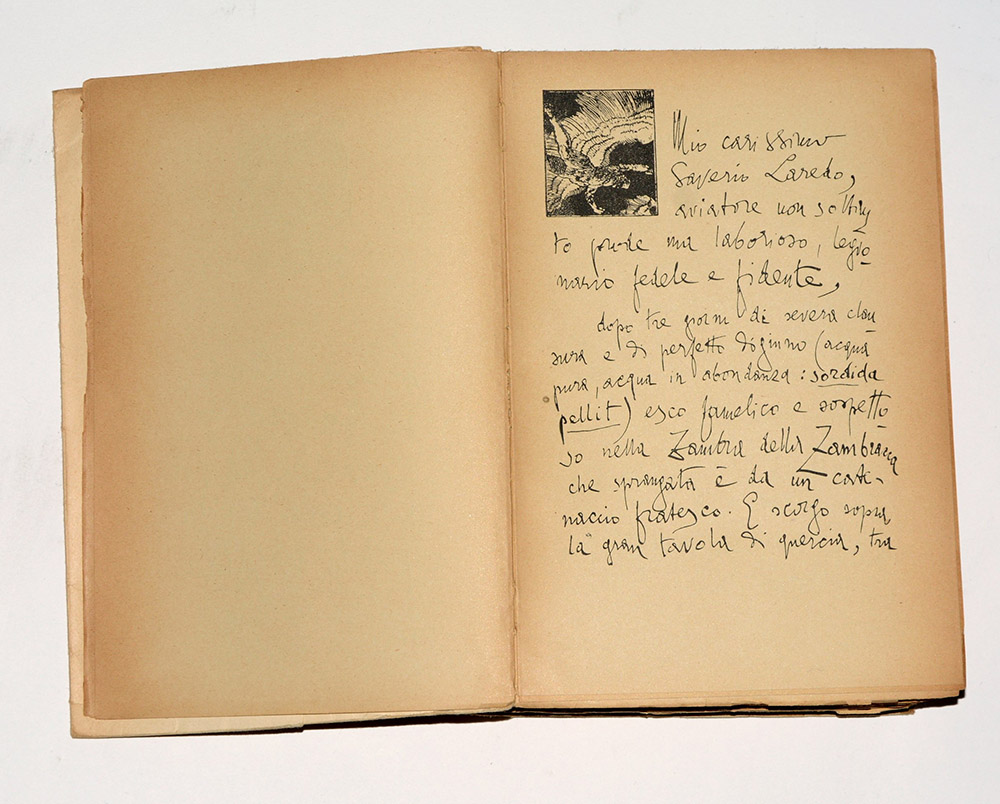 Mio carissimo
Saverio Laredo,
aviatore non soltan
to prode ma laborioso, legio
nario fedele e fidente,
dopo tre giorni di severa clau
sura e di perfetto digiuno (acqua
pura, acqua in abondanza: sordida
pellit) esco famelico e sospetto
so nella Zambra della Zambracca
che sprangata è da un cate-
naccio fratesco. E scorgo sopra
la gran tavola di quercia, tra